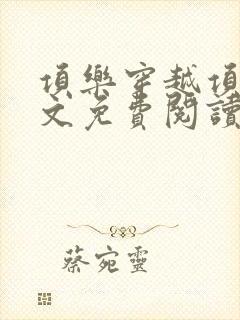 頂樂穿越頂
文免費閱讀
蔡宛靈